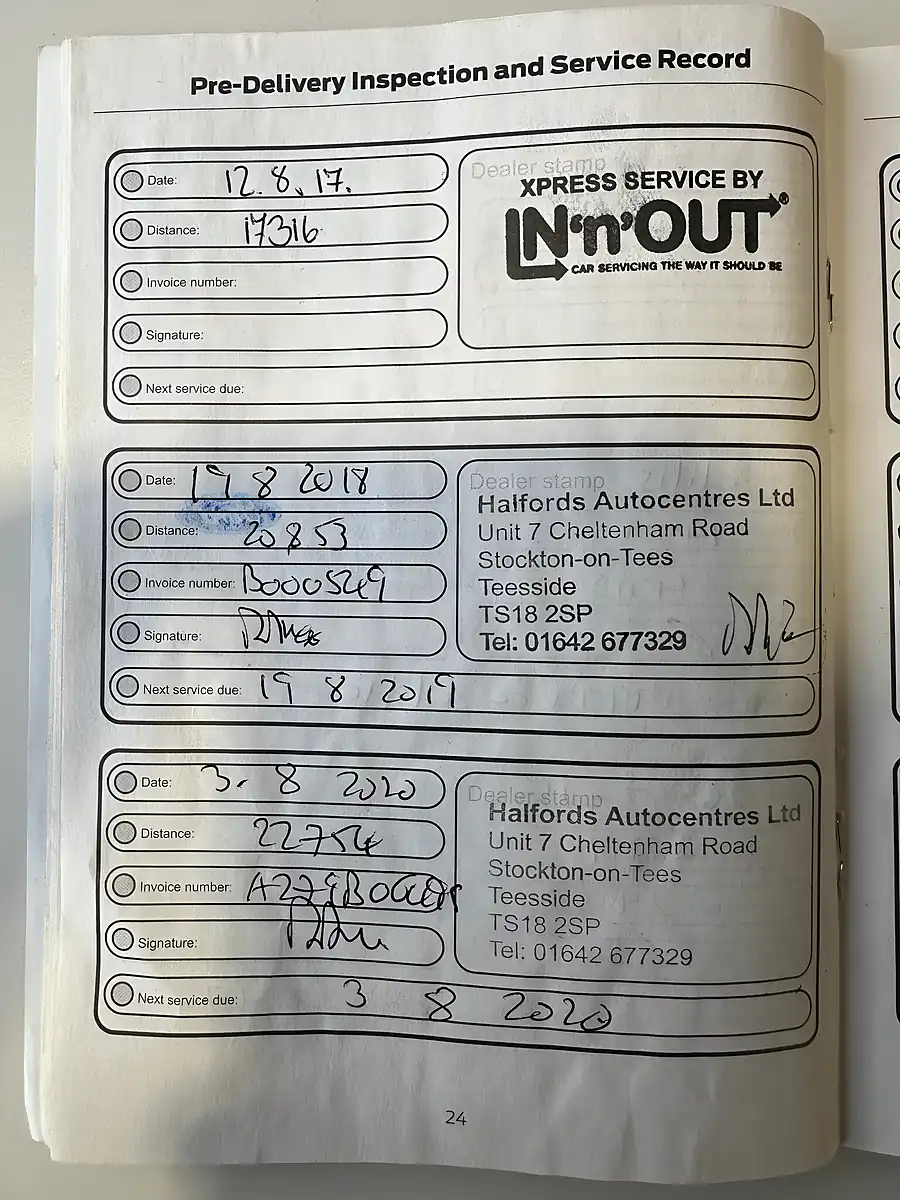 Pre-Delivery Inspection and Service Record
Date: 12.8.17.
Distance: 17316
Invoice number:
Signature:
Next service due:
Dealer stamp
XPRESS SERVICE BY
IN'n'OUT®
CAR SERVICING THE WAY IT SHOULD BE
Date: 19 8 2018
Distance: 20853
Invoice number: B0005249
Signature:
Next service due: 19 8 2019
Dealer stamp
Halfords Autocentres Ltd
Unit 7 Cheltenham Road
Stockton-on-Tees
Teesside
TS18 2SP
Tel: 01642 677329
Date: 3. 8 2020
Distance: 22754
Invoice number:
Signature:
Next service due: 3 8 2020
Dealer stamp
Halfords Autocentres Ltd
Unit 7 Cheltenham Road
Stockton-on-Tees
Teesside
TS18 2SP
Tel: 01642 677329
24